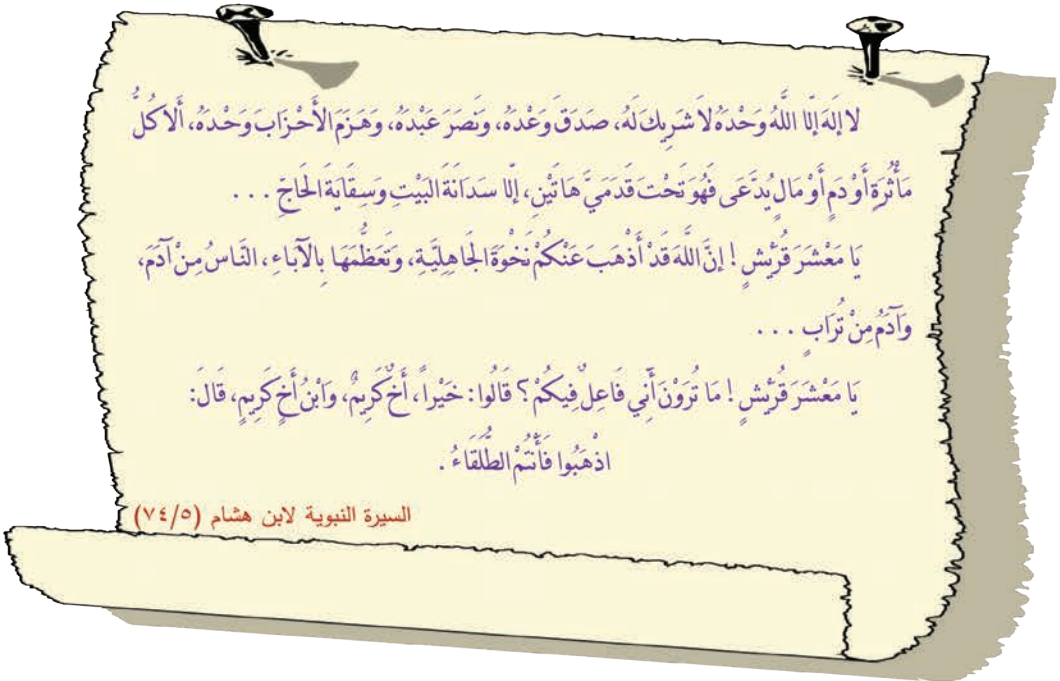 لا إلَهَ إلّا اللَّهُ وَحْدَهُ لاَ شَرِيكَ لَهُ، صَدَقَ وَعْدَهُ، وَنَصَرَ عَبْدَهُ، وَهَزَمَ الأَحْزَابَ وَحْدَهُ، أَلَا كُلُّ
مَأْثُرَةٍ أَوْ دَمٍ أَوْ مَالٍ يُدَّعَى فَهُوَ تَحْتَ قَدَمَيَّ هَاتَيْنِ، إلّا سَدَانَةَ البَيْتِ وَسِقَايَةَ الحَاجّ . . .
يَا مَعْشَرَ قُرَيْشٍ ! إنَّ اللَّهَ قَدْ أَذْهَبَ عَنْكُمْ نَخْوَةَ الجَاهِلِيَّةِ، وَتَعَظُّمَهَا بِالآبَاءِ، النَّاسُ مِنْ آدَمَ،
وَآدَمُ مِنْ تُرَابٍ . . .
يَا مَعْشَرَ قُرَيْشٍ ! مَا تُرَوْنَ أَنِّي فَاعِلٌ فِيكُمْ ؟ قَالُوا : خَيْراً، أَخٌ كَرِيمٌ، وَابْنُ أَخٍ كَرِيمٍ، قَالَ:
اذْهَبُوا فَأَنْتُمْ الطُّلَقَاءُ .
السيرة النبوية لابن هشام (٧٤/٥)